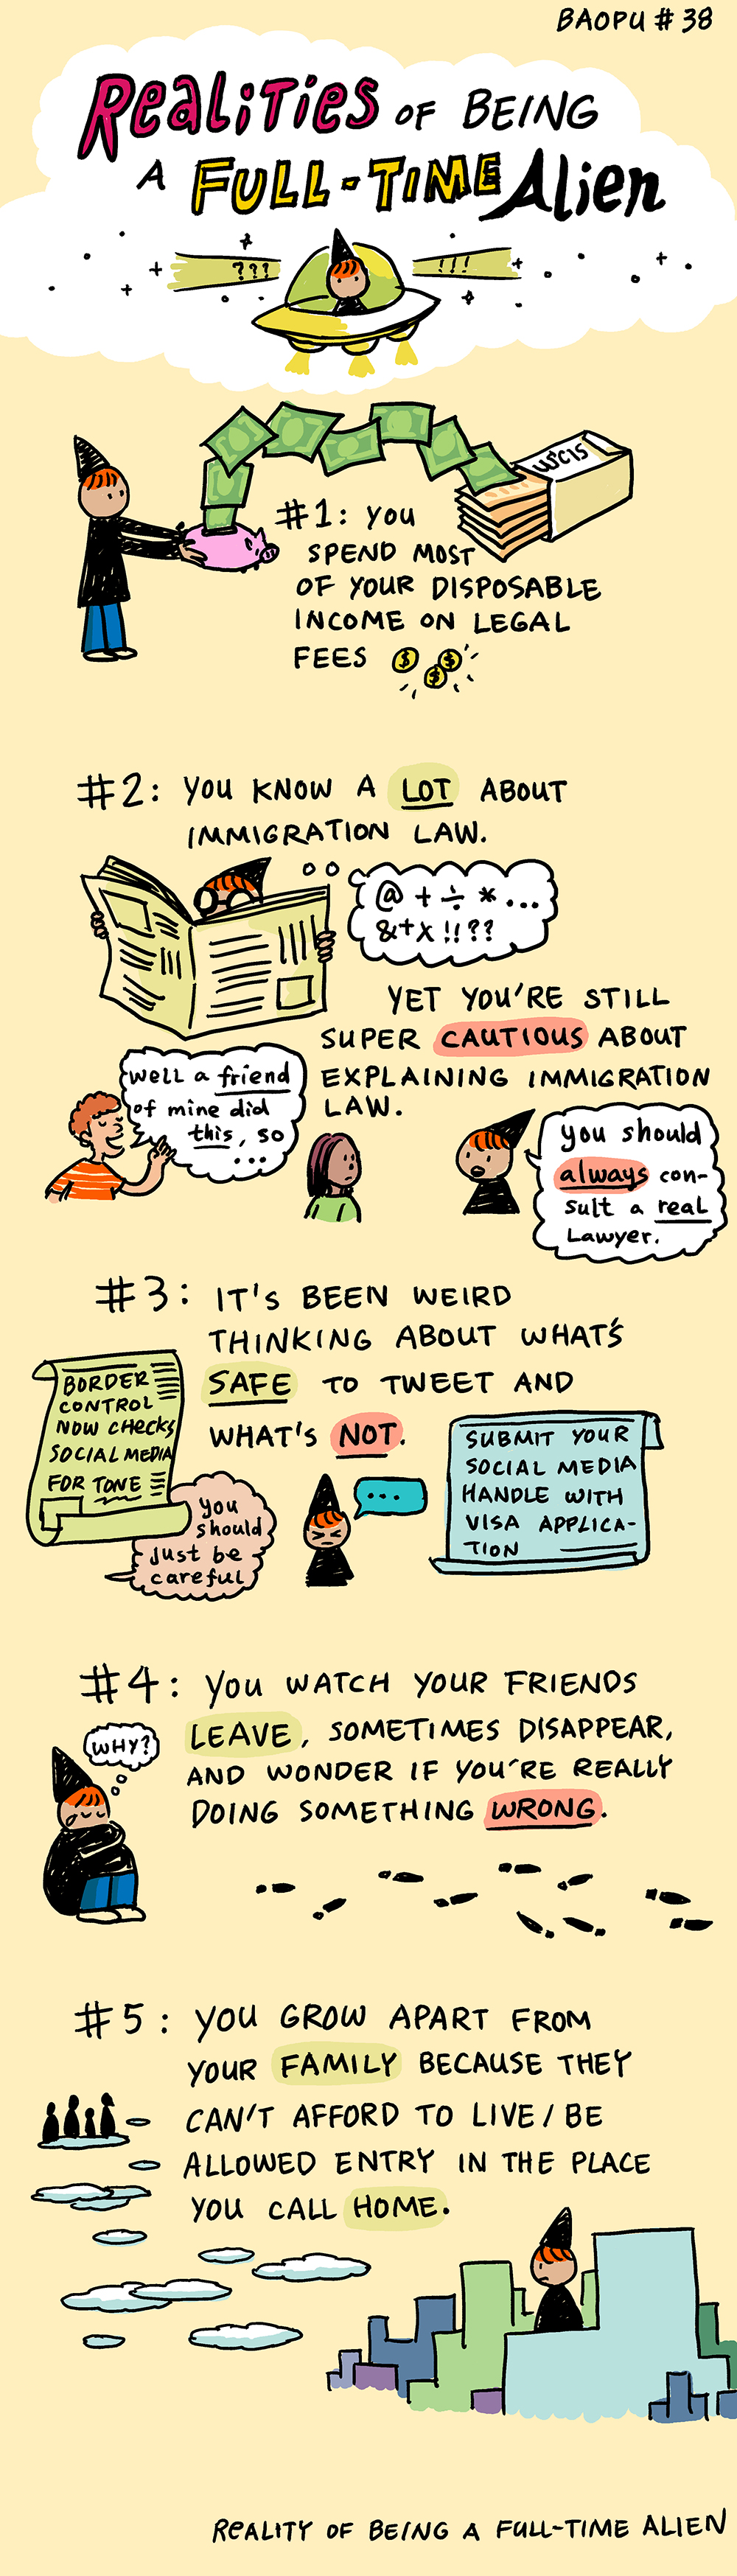 BAOPU #38
REALITIES OF BEING
A FULL-TIME Alien
???
!!!
USCIS
#1: YOU
SPEND MOST
OF YOUR DISPOSABLE
INCOME ON LEGAL
FEES $ $ $
#2: YOU KNOW A LOT ABOUT
IMMIGRATION LAW.
@ + ÷ * ...
&+x !!??
YET YOU'RE STILL
SUPER CAUTIOUS ABOUT
EXPLAINING IMMIGRATION
LAW.
Well a friend
of mine did
this, so
...
you should
always con-
sult a real
Lawyer.
#3: IT'S BEEN WEIRD
THINKING ABOUT WHAT'S
SAFE TO TWEET AND
WHAT'S NOT.
BORDER
CONTROL
NOW CHECKS
SOCIAL MEDIA
FOR TONE
you
should
just be
careful
...
SUBMIT YOUR
SOCIAL MEDIA
HANDLE WITH
VISA APPLICA-
TION
#4: YOU WATCH YOUR FRIENDS
LEAVE, SOMETIMES DISAPPEAR,
AND WONDER IF YOU'RE REALLY
DOING SOMETHING WRONG.
WHY?
#5: YOU GROW APART FROM
YOUR FAMILY BECAUSE THEY
CAN'T AFFORD TO LIVE/BE
ALLOWED ENTRY IN THE PLACE
YOU CALL HOME.
REALITY OF BEING A FULL-TIME ALIEN